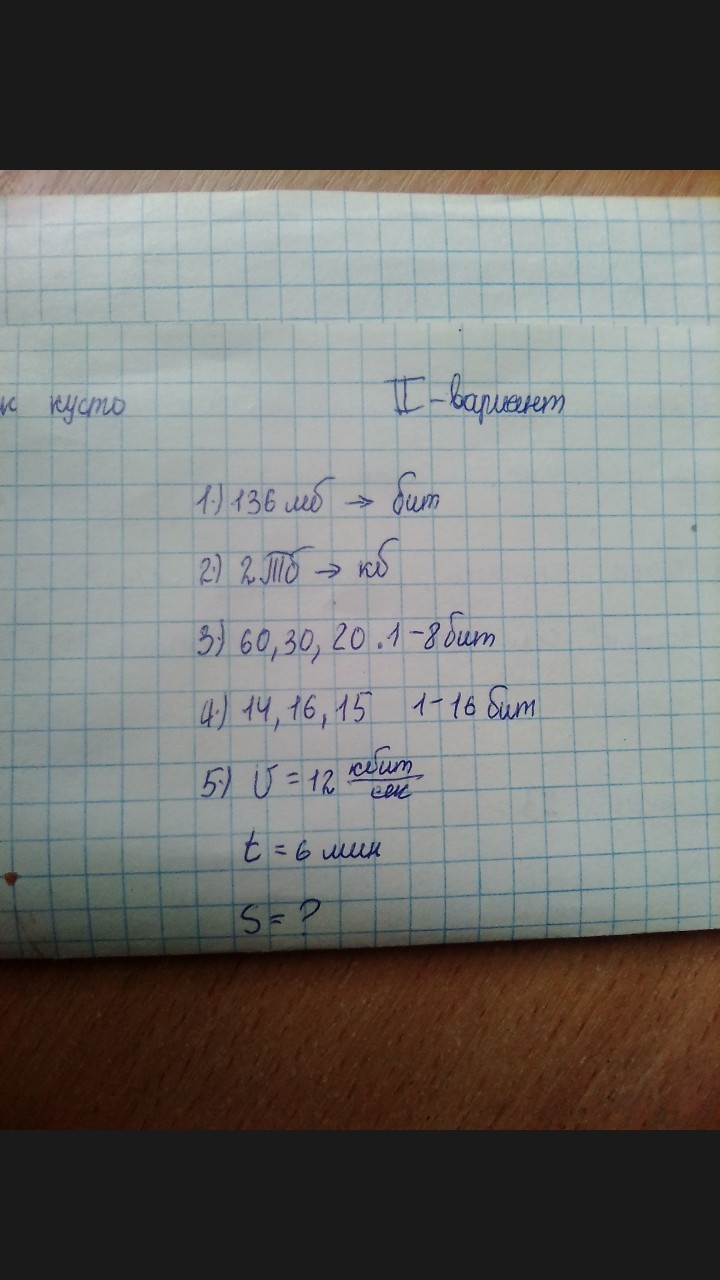 к кусто
II-вариант
1.) 136 мб → бит
2.) 2 Тб → кб
3.) 60, 30, 20 . 1-8 бит
4.) 14, 16, 15 1-16 бит
5.) V = 12 кбит/сек
t = 6 мин
S = ?